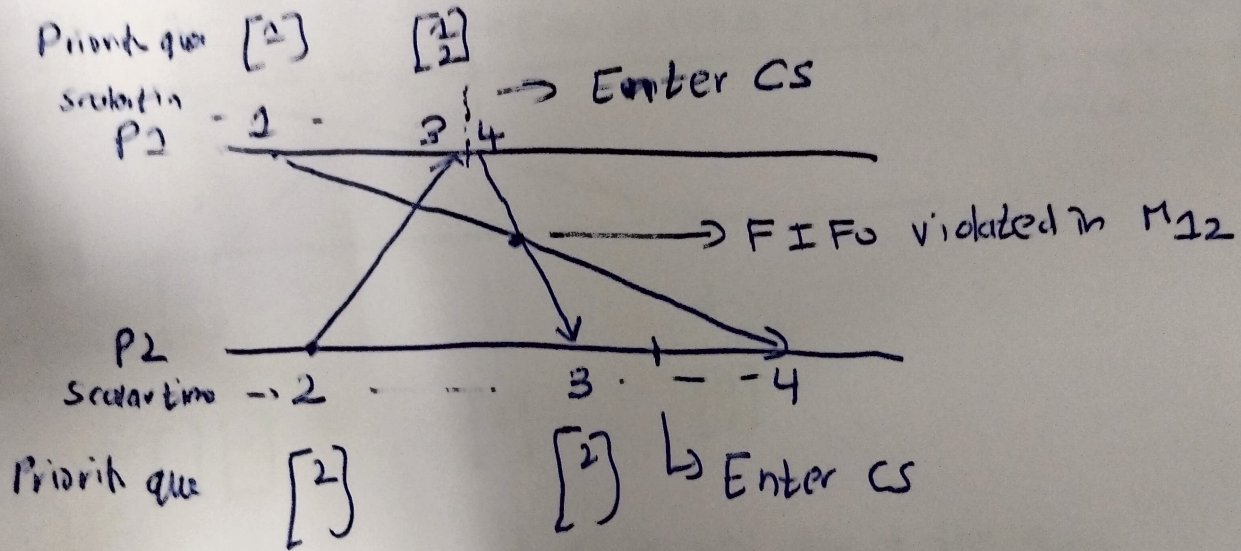 Priorit que [1] [1 2]
→ Enter CS
P1
1 3 4
→ FIFO violated in M12
P2
Scalar time → 2 3 4
Priorit que [2] [2] ↳ Enter CS